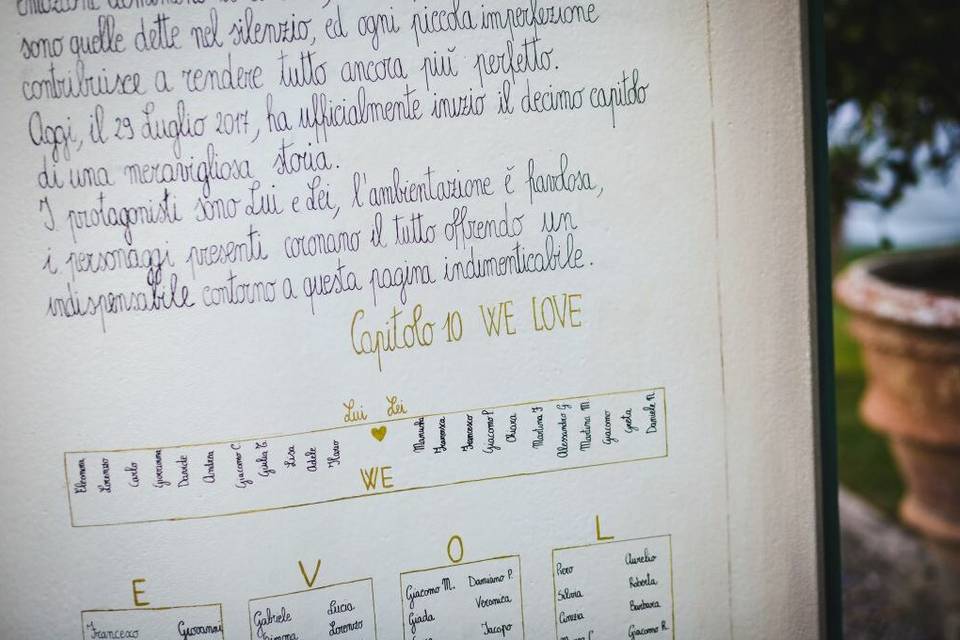 sono quelle dette nel silenzio, ed ogni piccola imperfezione
contribuisce a rendere tutto ancora più perfetto.
Oggi, il 29 Luglio 2017, ha ufficialmente inizio il decimo capitolo
di una meravigliosa storia.
I protagonisti sono Lui e Lei, l'ambientazione è favolosa,
i personaggi presenti coronano il tutto offrendo un
indispensabile contorno a questa pagina indimenticabile.
Capitolo 10 WE LOVE
Lui Lei
Eleonora
Lorenzo
Carlo
Giovanna
Davide
Andrea
Giacomo C.
Giulia T.
Lisa
Adele
Marco
Manuela
Francesca
Francesco
Giacomo P.
Chiara
Martina F.
Alessandro G.
Martina M.
Giacomo
Greta
Daniele N.
WE
E V O L
Francesco Giovanni
Gabriele Lucia
Simona Lorenzo
Giacomo M. Damiano P.
Giada Veronica
Jacopo
Piero Aurelio
Silvia Roberta
Cinzia Barbara
Giacomo R.